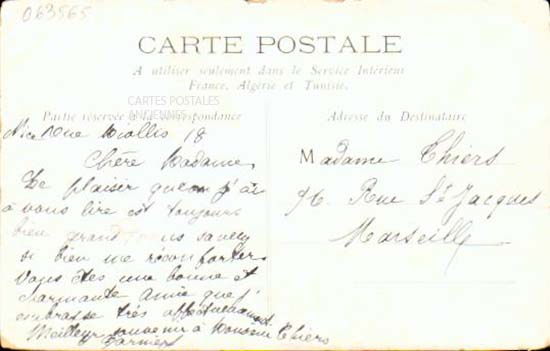 063565
CARTE POSTALE
A utiliser seulement dans le Service Intérieur
France, Algérie et Tunisie.
Partie réservée à la correspondance
CARTES POSTALES
ANCIENNES
Adresse du Destinataire
Rue 18
Chère Madame,
Le plaisir que j'ai
à vous lire est toujours
bien grand vous savez
si bien me réconforter
Vous êtes une bonne et
charmante Amie que j'
embrasse très affectueusement
Meilleur souvenir à Monsieur Thiers
Madame Thiers
Rue St Jacques
Marseille